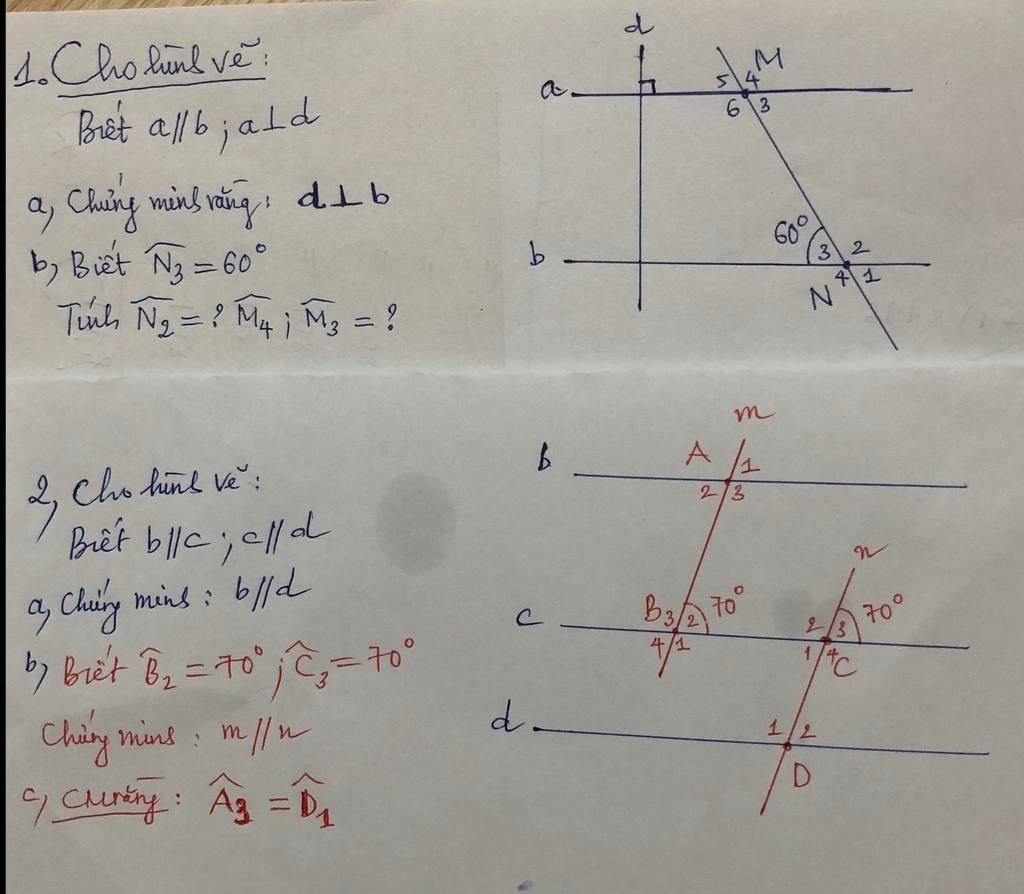 1. Cho hình vẽ:
Biết a//b ; a⊥d
a, Chứng minh rằng: d⊥b
b, Biết N̂3 = 60°
Tính N̂2 = ? M̂4 ; M̂3 = ?
d
a
5 4 M
6 3
60°
b
3 2
4 1
N
2, Cho hình vẽ:
Biết b//c ; c//d
a, Chứng minh : b//d
b, Biết B̂2 = 70° ; Ĉ3 = 70°
Chứng minh : m//n
c, CM rằng : Â3 = D̂1
m
b
A 1
2 3
n
c
B 3 2 70°
4 1
2 3 70°
1 4 C
d
1 2
D